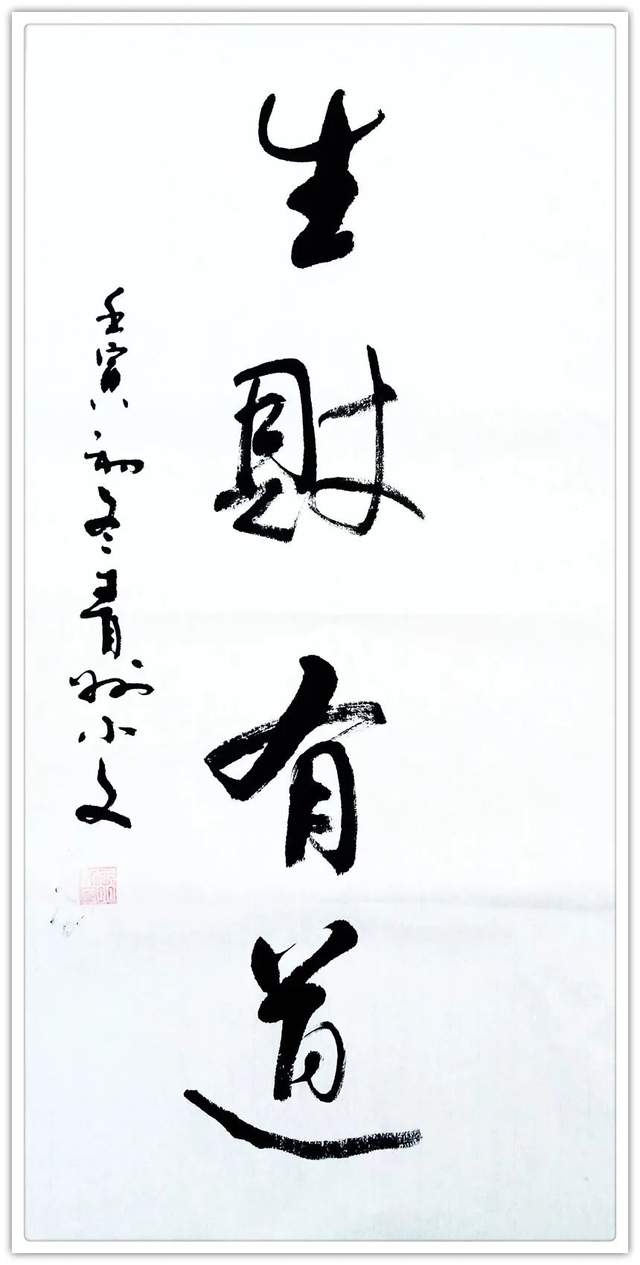 生财有道
壬寅初冬青州小文